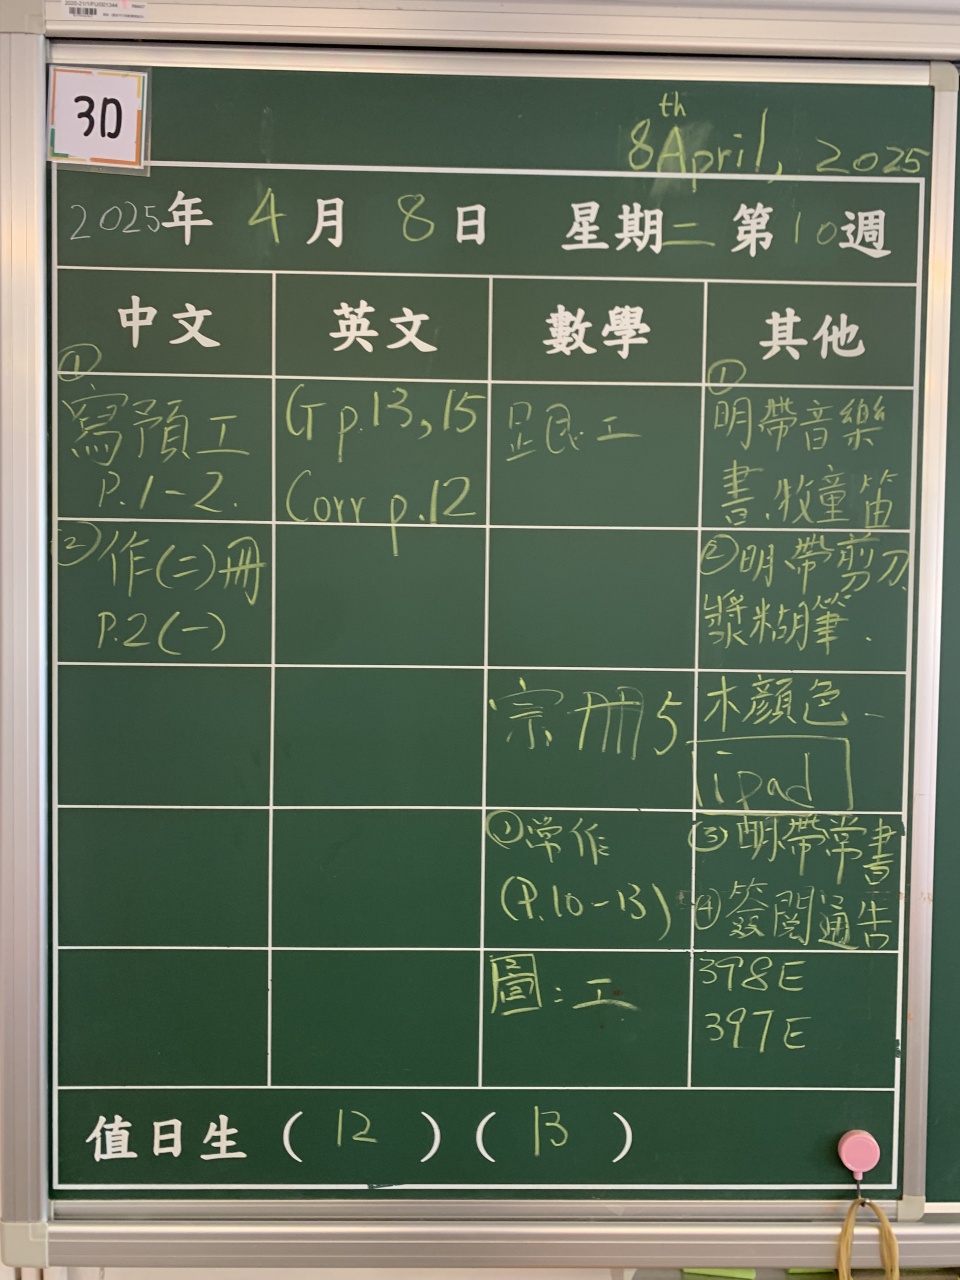 3D
8th April, 2025
2025年 4月 8日 星期二 第10週
中文 英文 數學 其他
①
寫預工
P.1-2.
②作(二)冊
P.2(一)
G p.13,15
Corr p.12
工
宗冊5
①常作
(P.10-13)
圖:工
①
明帶音樂
書.牧童笛
②明帶剪刀
漿糊筆.
木顏色
ipad
③明帶常書
④簽閱通告
398E
397E
值日生(12)(13)